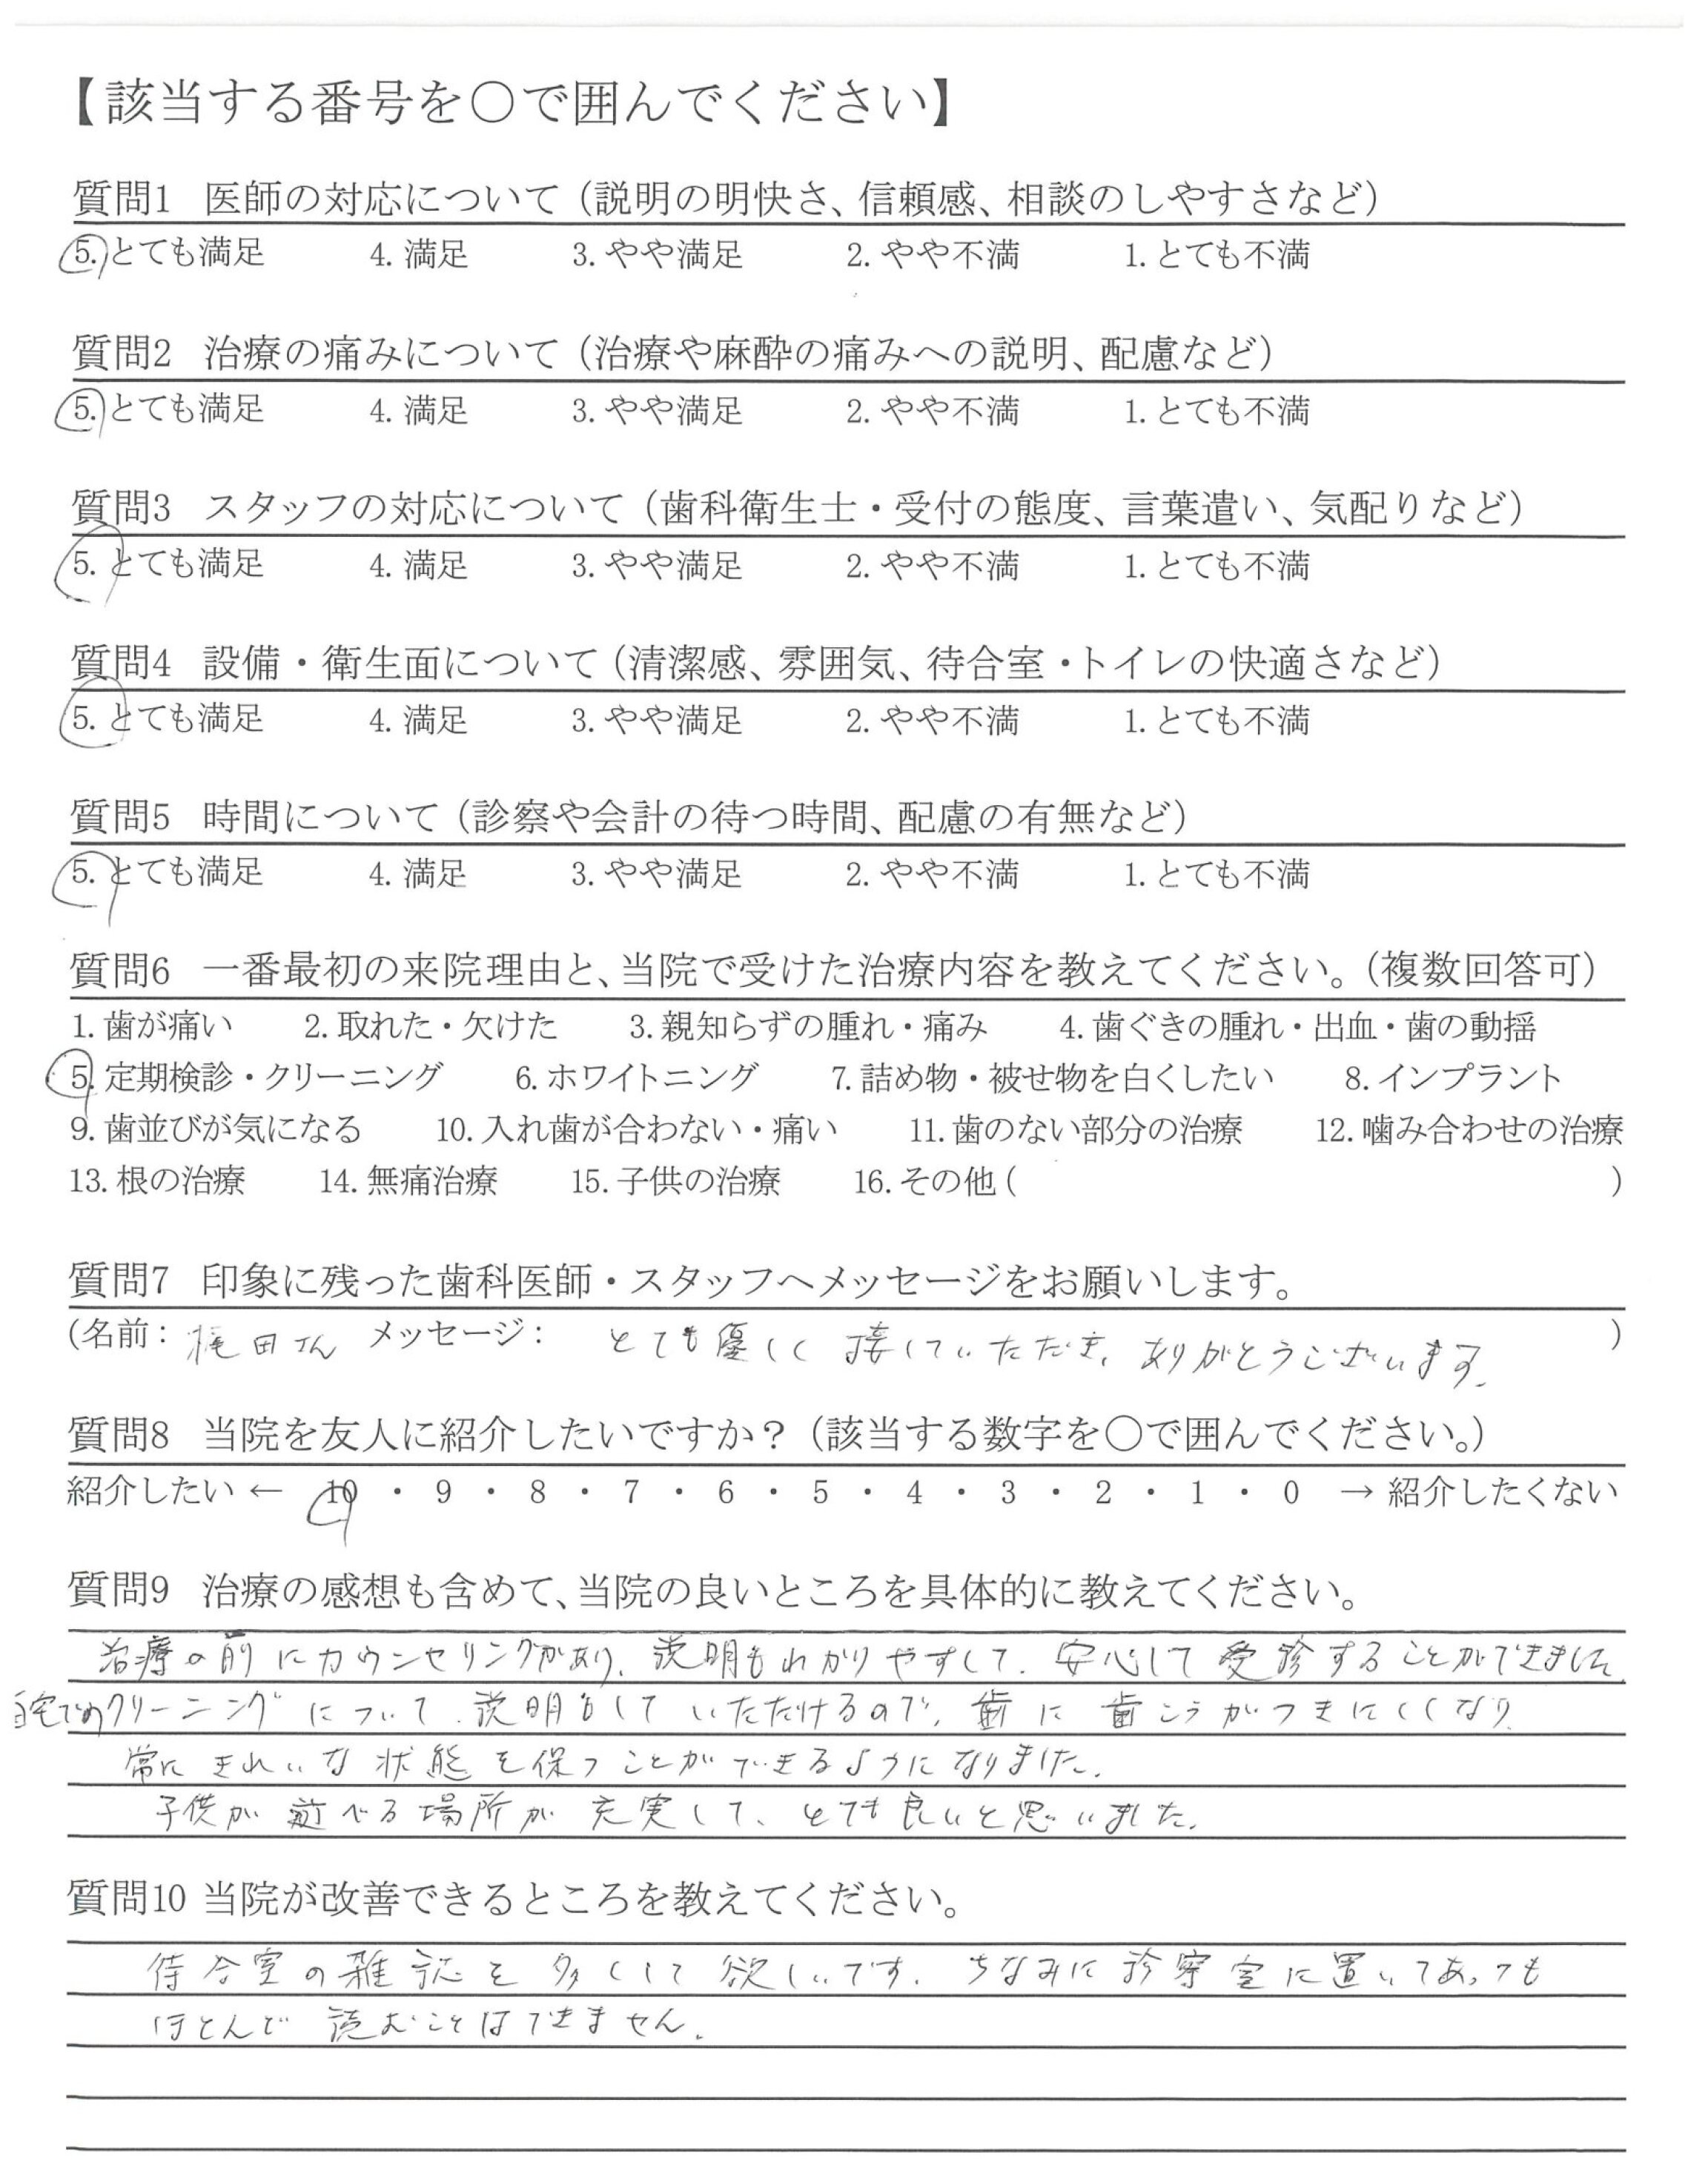 【該当する番号を○で囲んでください】
質問1 医師の対応について（説明の明快さ、信頼感、相談のしやすさなど）
5. とても満足 4. 満足 3. やや満足 2. やや不満 1. とても不満
質問2 治療の痛みについて（治療や麻酔の痛みへの説明、配慮など）
5. とても満足 4. 満足 3. やや満足 2. やや不満 1. とても不満
質問3 スタッフの対応について（歯科衛生士・受付の態度、言葉遣い、気配りなど）
5. とても満足 4. 満足 3. やや満足 2. やや不満 1. とても不満
質問4 設備・衛生面について（清潔感、雰囲気、待合室・トイレの快適さなど）
5. とても満足 4. 満足 3. やや満足 2. やや不満 1. とても不満
質問5 時間について（診察や会計の待つ時間、配慮の有無など）
5. とても満足 4. 満足 3. やや満足 2. やや不満 1. とても不満
質問6 一番最初の来院理由と、当院で受けた治療内容を教えてください。（複数回答可）
1. 歯が痛い 2. 取れた・欠けた 3. 親知らずの腫れ・痛み 4. 歯ぐきの腫れ・出血・歯の動揺
5. 定期検診・クリーニング 6. ホワイトニング 7. 詰め物・被せ物を白くしたい 8. インプラント
9. 歯並びが気になる 10. 入れ歯が合わない・痛い 11. 歯のない部分の治療 12. 噛み合わせの治療
13. 根の治療 14. 無痛治療 15. 子供の治療 16. その他（ ）
質問7 印象に残った歯科医師・スタッフへメッセージをお願いします。
（名前： 梶田さん メッセージ： とても優しく接していただき、ありがとうございます。）
質問8 当院を友人に紹介したいですか？（該当する数字を○で囲んでください。）
紹介したい ← 10 ・ 9 ・ 8 ・ 7 ・ 6 ・ 5 ・ 4 ・ 3 ・ 2 ・ 1 ・ 0 → 紹介したくない
質問9 治療の感想も含めて、当院の良いところを具体的に教えてください。
治療の前にカウンセリングがあり、説明もわかりやすくて、安心して受診することができました。
自宅でのクリーニングについて、説明もしていただけるので、歯に歯こうがつきにくくなり、
常にきれいな状態を保つことができるようになりました。
子供が遊べる場所が充実して、とても良いと思いました。
質問10 当院が改善できるところを教えてください。
待合室の雑誌を多くして欲しいです。ちなみに診察室に置いてあっても
ほとんど読むことはできません。